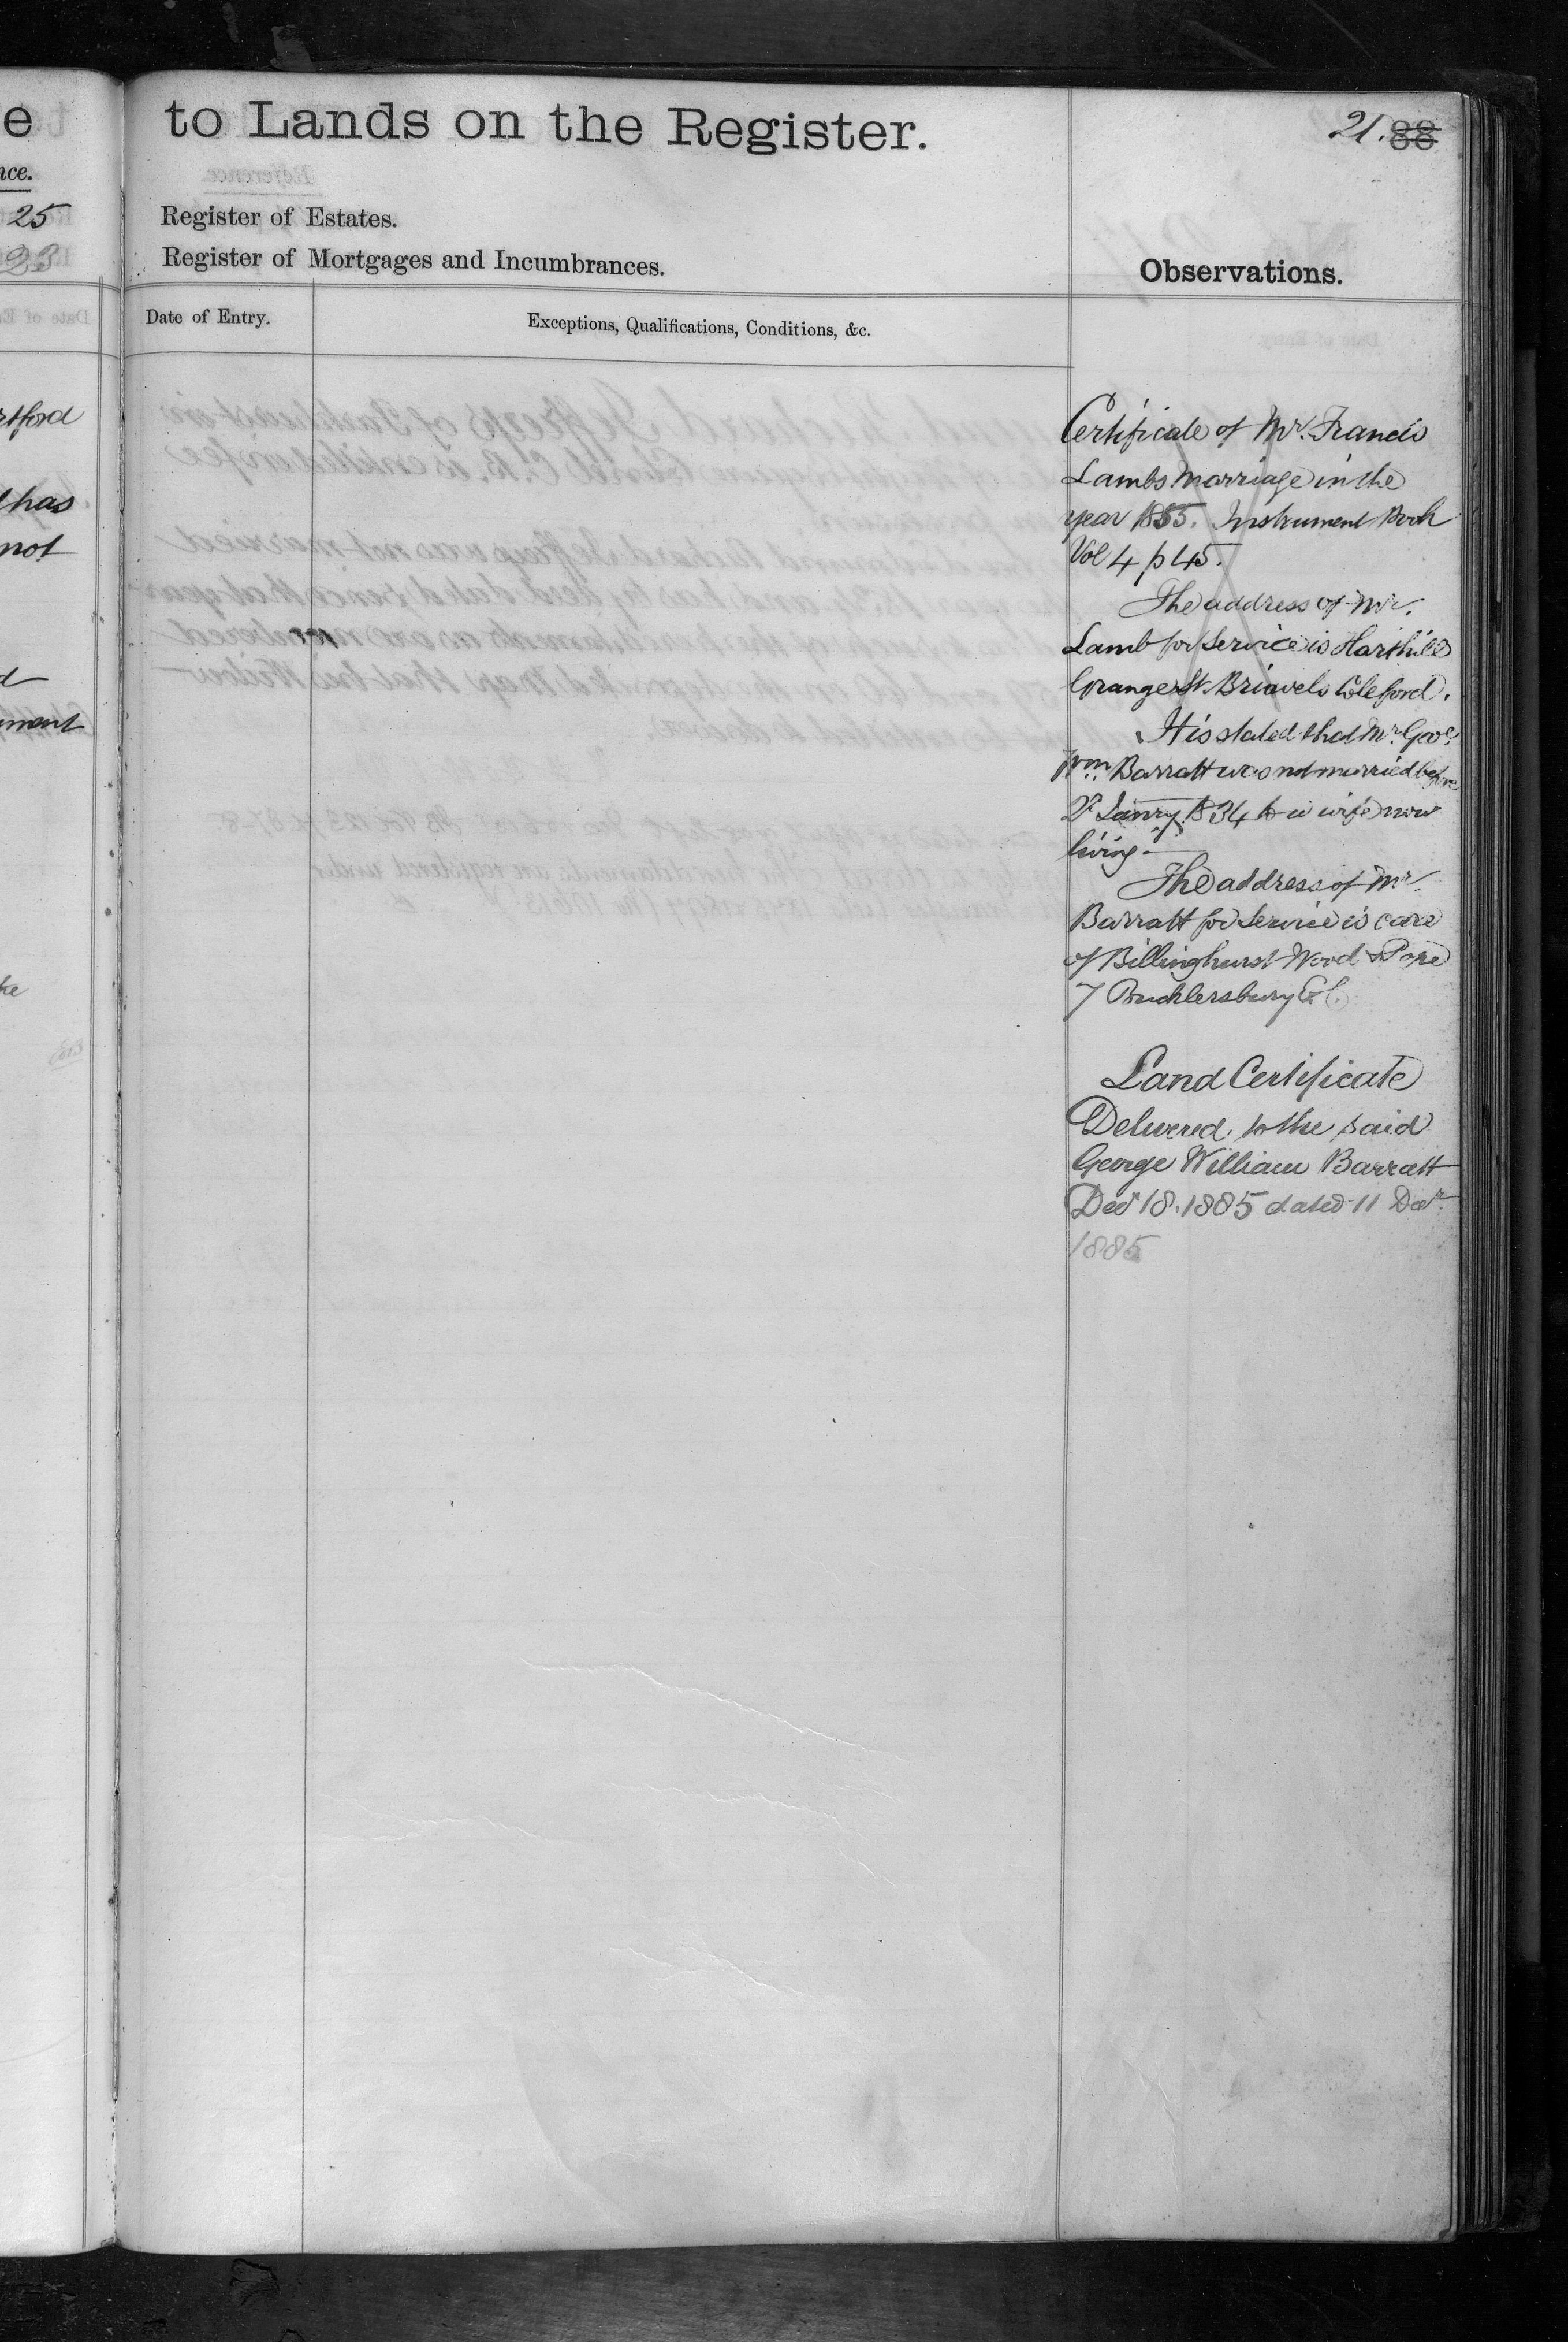 e
nce.
25
23
rtford
has
not
d
ument
ke
to Lands on the Register.
21. 88
Register of Estates.
Register of Mortgages and Incumbrances.
Observations.
Date of Entry.
Exceptions, Qualifications, Conditions, &c.
Certificate of Mr. Francis
Lambs Marriage in the
year 1855. Instrument Book
Vol 4 p 45.
The address of Mr.
Lamb for Service is Harthill
Grange St. Briavels Coleford.
It is stated that Mr. Geo.
Wm. Barratt was not married before
Janry. 1834 to a wife now
living.—
The address of Mr.
Barratt for Service is care
of Billinghurst Wood & Pope
7 Bucklersbury E.C.
Land Certificate
Delivered to the said
George William Barratt
Decr 18. 1885 dated 11 Decr.
1885